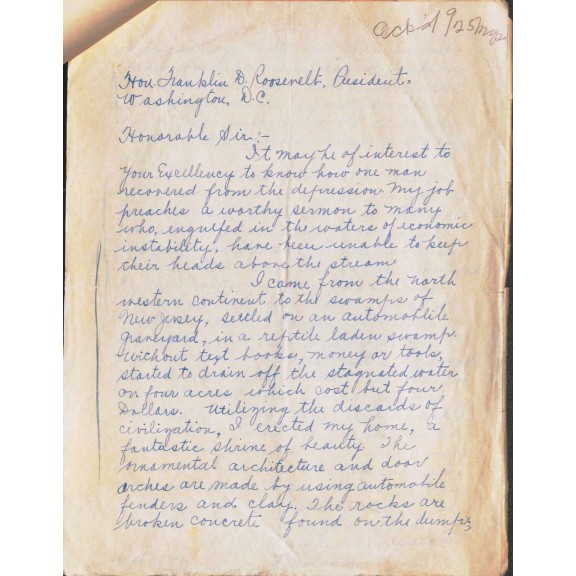 Ack'd 9/25
Hon. Franklin D. Roosevelt, President,
Washington, D.C.
Honorable Sir:-
It may be of interest to
Your Excellency to know how one man
recovered from the depression. My job
preaches a worthy sermon to many
who, engulfed in the waters of economic
instability, have been unable to keep
their heads above the stream.
I came from the north
western continent to the swamps of
New Jersey, settled on an automobile
graveyard, in a reptile laden swamp.
Without text books, money or tools,
started to drain off the stagnated water
on four acres which cost but four
Dollars. Utilizing the discards of
civilization, I erected my home, a
fantastic shrine of beauty. The
ornamental architecture and door
arches are made by using automobile
fenders and clay. The rocks are
broken concrete found on the dumps,